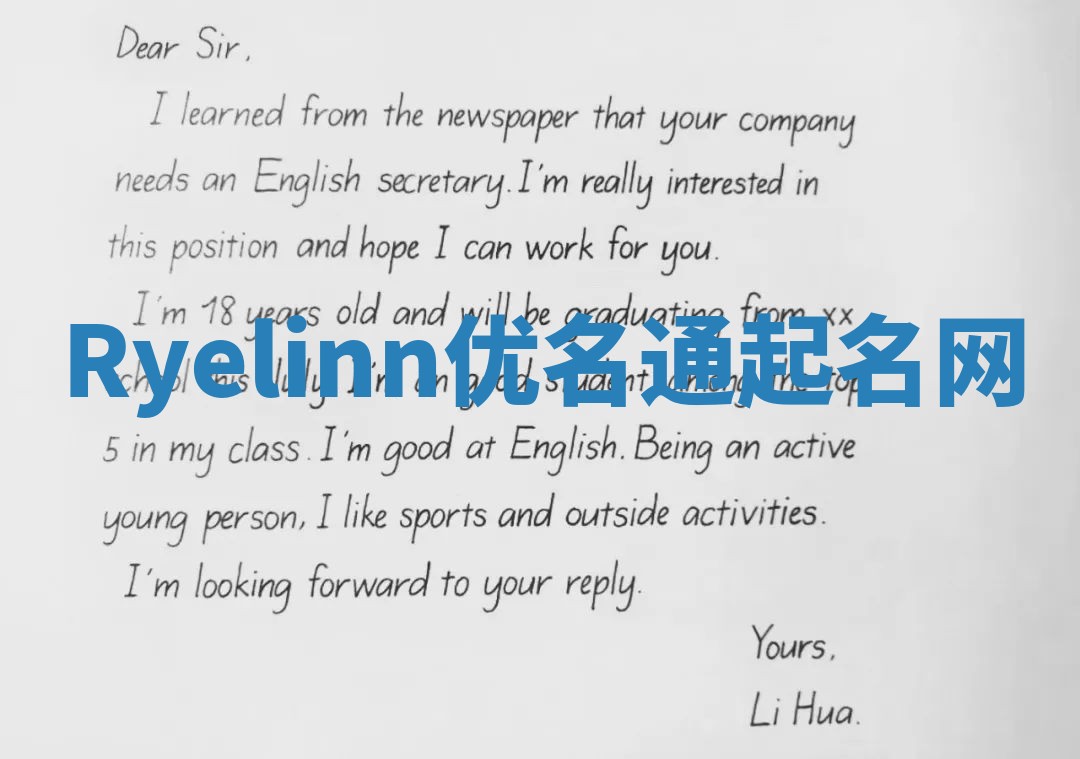 Dear Sir,
I learned from the newspaper that your company
needs an English secretary. I'm really interested in
this position and hope I can work for you.
I'm 18 years old and will be graduating from xx
Ryelinn优名通起名网
school this July. I'm an good student, among the top
5 in my class. I'm good at English. Being an active
young person, I like sports and outside activities.
I'm looking forward to your reply.
Yours,
Li Hua.